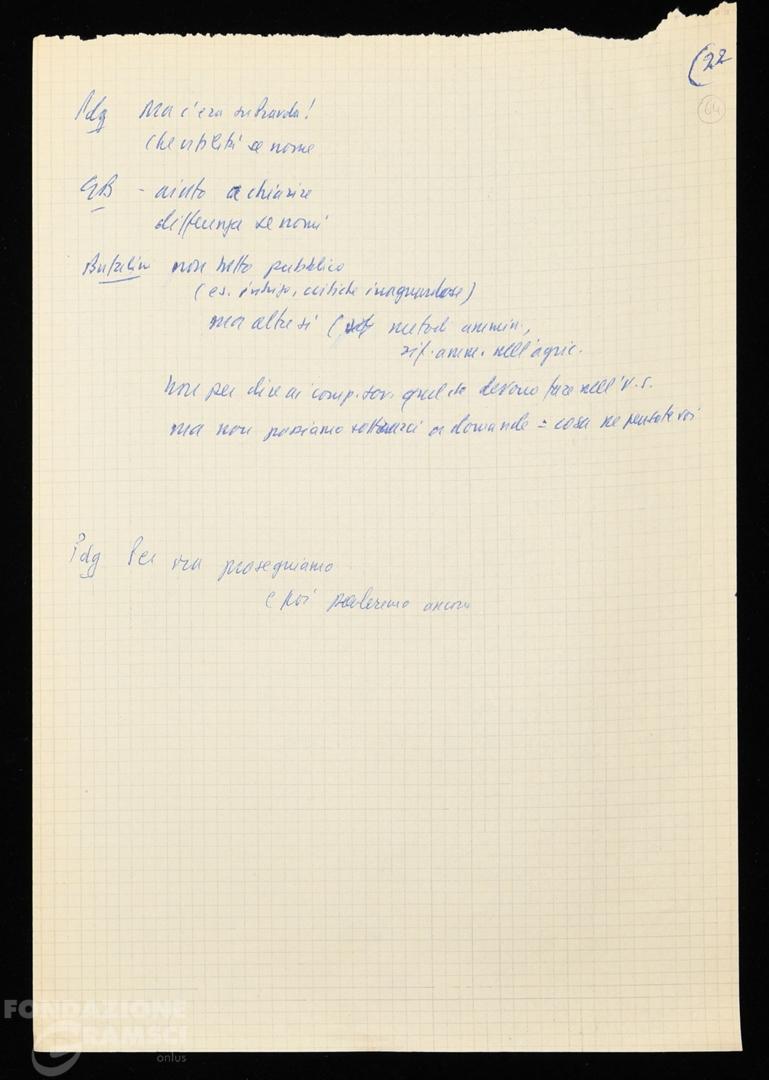 (22
64
Pdg Ma c'era su Pravda!
che utilità se nome
GB - aiuto a chiarire
differenza se nomi
Bufalini non tutto pubblico
(es. , critiche )
ma altresì ( metodi ammin,
rif. amm. nell'agric.
Non per dire ai comp. sov. quel che devono fare nell'U.S.
ma non possiamo sottrarci a domande = cosa ne pensate voi
Pdg Per ora proseguiamo
e poi parleremo ancora
FONDAZIONE
GRAMSCI
onlus